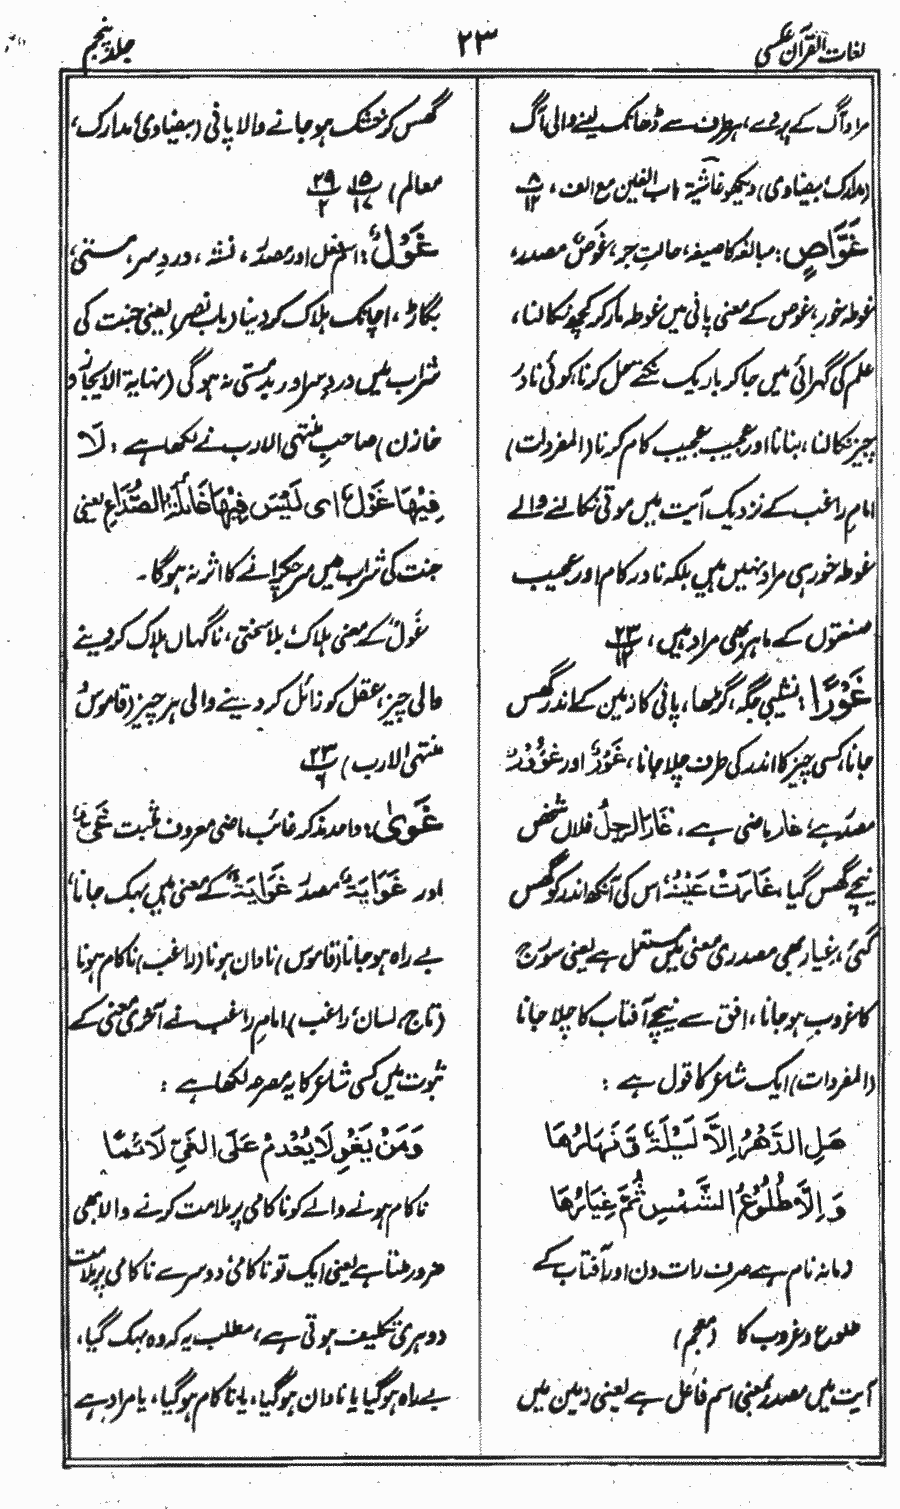 لغات القرآن عکسی
۲۳
جلد پنجم
مراد آگ کے پردے، ہر طرف سے ڈھانک لینے والی آگ
(مدارک، بیضاوی) دیکھو غاشیۃ باب الغین مع الف، ۸/۱۲
غَوَّاصٍ: مبالغہ کا صیغہ، حالتِ جر، غَوْصٌ مصدر،
غوطہ خور، غوص کے معنی پانی میں غوطہ مار کر کچھ نکالنا،
علم کی گہرائی میں جا کر باریک نکتے حل کرنا، کوئی نادر
چیز نکالنا، بنانا اور عجیب عجیب کام کرنا (المفردات)
امام راغب کے نزدیک آیت میں موتی نکالنے والے
غوطہ خور ہی مراد نہیں ہیں بلکہ نادر کام اور عجیب
صنعتوں کے ماہر بھی مراد ہیں، ۲۳/۱۲
غَوْرًا: نشیبی جگہ، گڑھا، پانی کا زمین کے اندر گھس
جانا، کسی چیز کا اندر کی طرف چلا جانا، غَوْرٌ اور غُؤُورٌ
مصدر ہے، غار ماضی ہے، غَارَ الرجلُ فلاں شخص
نیچے گھس گیا، غَارَتْ عَيْنُهٗ اس کی آنکھ اندر کو گھس
گئی، غیار بھی مصدری معنی میں مستعمل ہے یعنی سورج
کا غروب ہو جانا، افق سے نیچے آفتاب کا چلا جانا
(المفردات) ایک شاعر کا قول ہے:
هَلِ الدَّهْرُ اِلَّا لَيْلَةٌ وَ نَهَارُهَا
وَ اِلَّا طُلُوْعُ الشَّمْسِ ثُمَّ غِيَارُهَا
زمانہ نام ہے صرف رات دن اور آفتاب کے
طلوع و غروب کا (معجم)
آیت میں مصدر بمعنی اسم فاعل ہے یعنی زمین میں
گھس کر خشک ہو جانے والا پانی (بیضاوی، مدارک،
معالم) ۱۵/۱۷ ۲۹/۲
غَوْلٌ: اسم فعل اور مصدر، نشہ، دردِ سر، مستی،
بگاڑ، اچانک ہلاک کر دینا (باب نصر) یعنی جنت کی
شراب میں دردِ سر اور بدمستی نہ ہوگی (نہایۃ الایجاز و
خازن) صاحبِ منتہی الارب نے لکھا ہے: لَا
فِيْهَا غَوْلٌ ای لَيْسَ فِيْهَا غَائِلَةُ الصُّدَاعِ یعنی
جنت کی شراب میں سر چکرانے کا اثر نہ ہوگا۔
غَوْلٌ کے معنی ہلاک، بلا سختی، ناگہاں ہلاک کر دینے
والی چیز، عقل کو زائل کر دینے والی ہر چیز (قاموس،
منتہی الارب) ۲۳/۶
غَوٰی: واحد مذکر غائب ماضی معروف مثبت غَیٌّ
اور غَوَايَةٌ مصدر غَوَايَةٌ کے معنی ہیں بہک جانا،
بے راہ ہو جانا (قاموس) نادان ہونا (راغب) ناکام ہونا
(تاج، لسان، راغب) امام راغب نے آخری معنی کے
ثبوت میں کسی شاعر کا یہ مصرعہ لکھا ہے:
وَمَنْ يَغْوِ لَا يُعْدَمْ عَلَى الْغَيِّ لَائِمًا
ناکام ہونے والے کو ناکامی پر ملامت کرنے والا بھی
ضرور ملتا ہے یعنی ایک تو ناکامی، دوسرے ناکامی پر ملامت
دوہری تکلیف ہوتی ہے، مطلب یہ کہ وہ بہک گیا،
بے راہ ہو گیا یا نادان ہو گیا، یا ناکام ہو گیا، یا مراد ہے